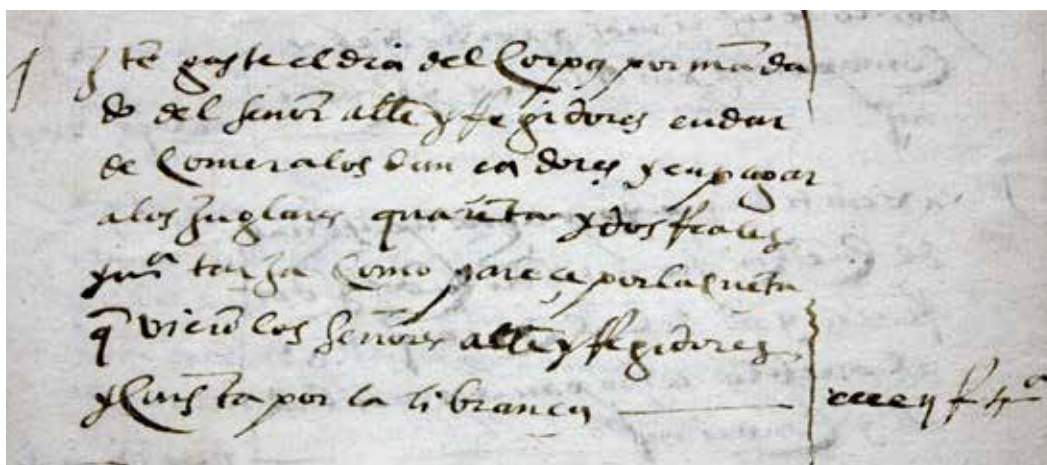 yten gaste el dia del Corpus por mãda
do del senor allde y rregidores en dar
de comer a los dançadores y en pagar
a los juglares quarẽta y dos rreales
y un tarja como parece por la quẽta
q̃ vierõ los señores allde y rregidores
y cõsta por la librança